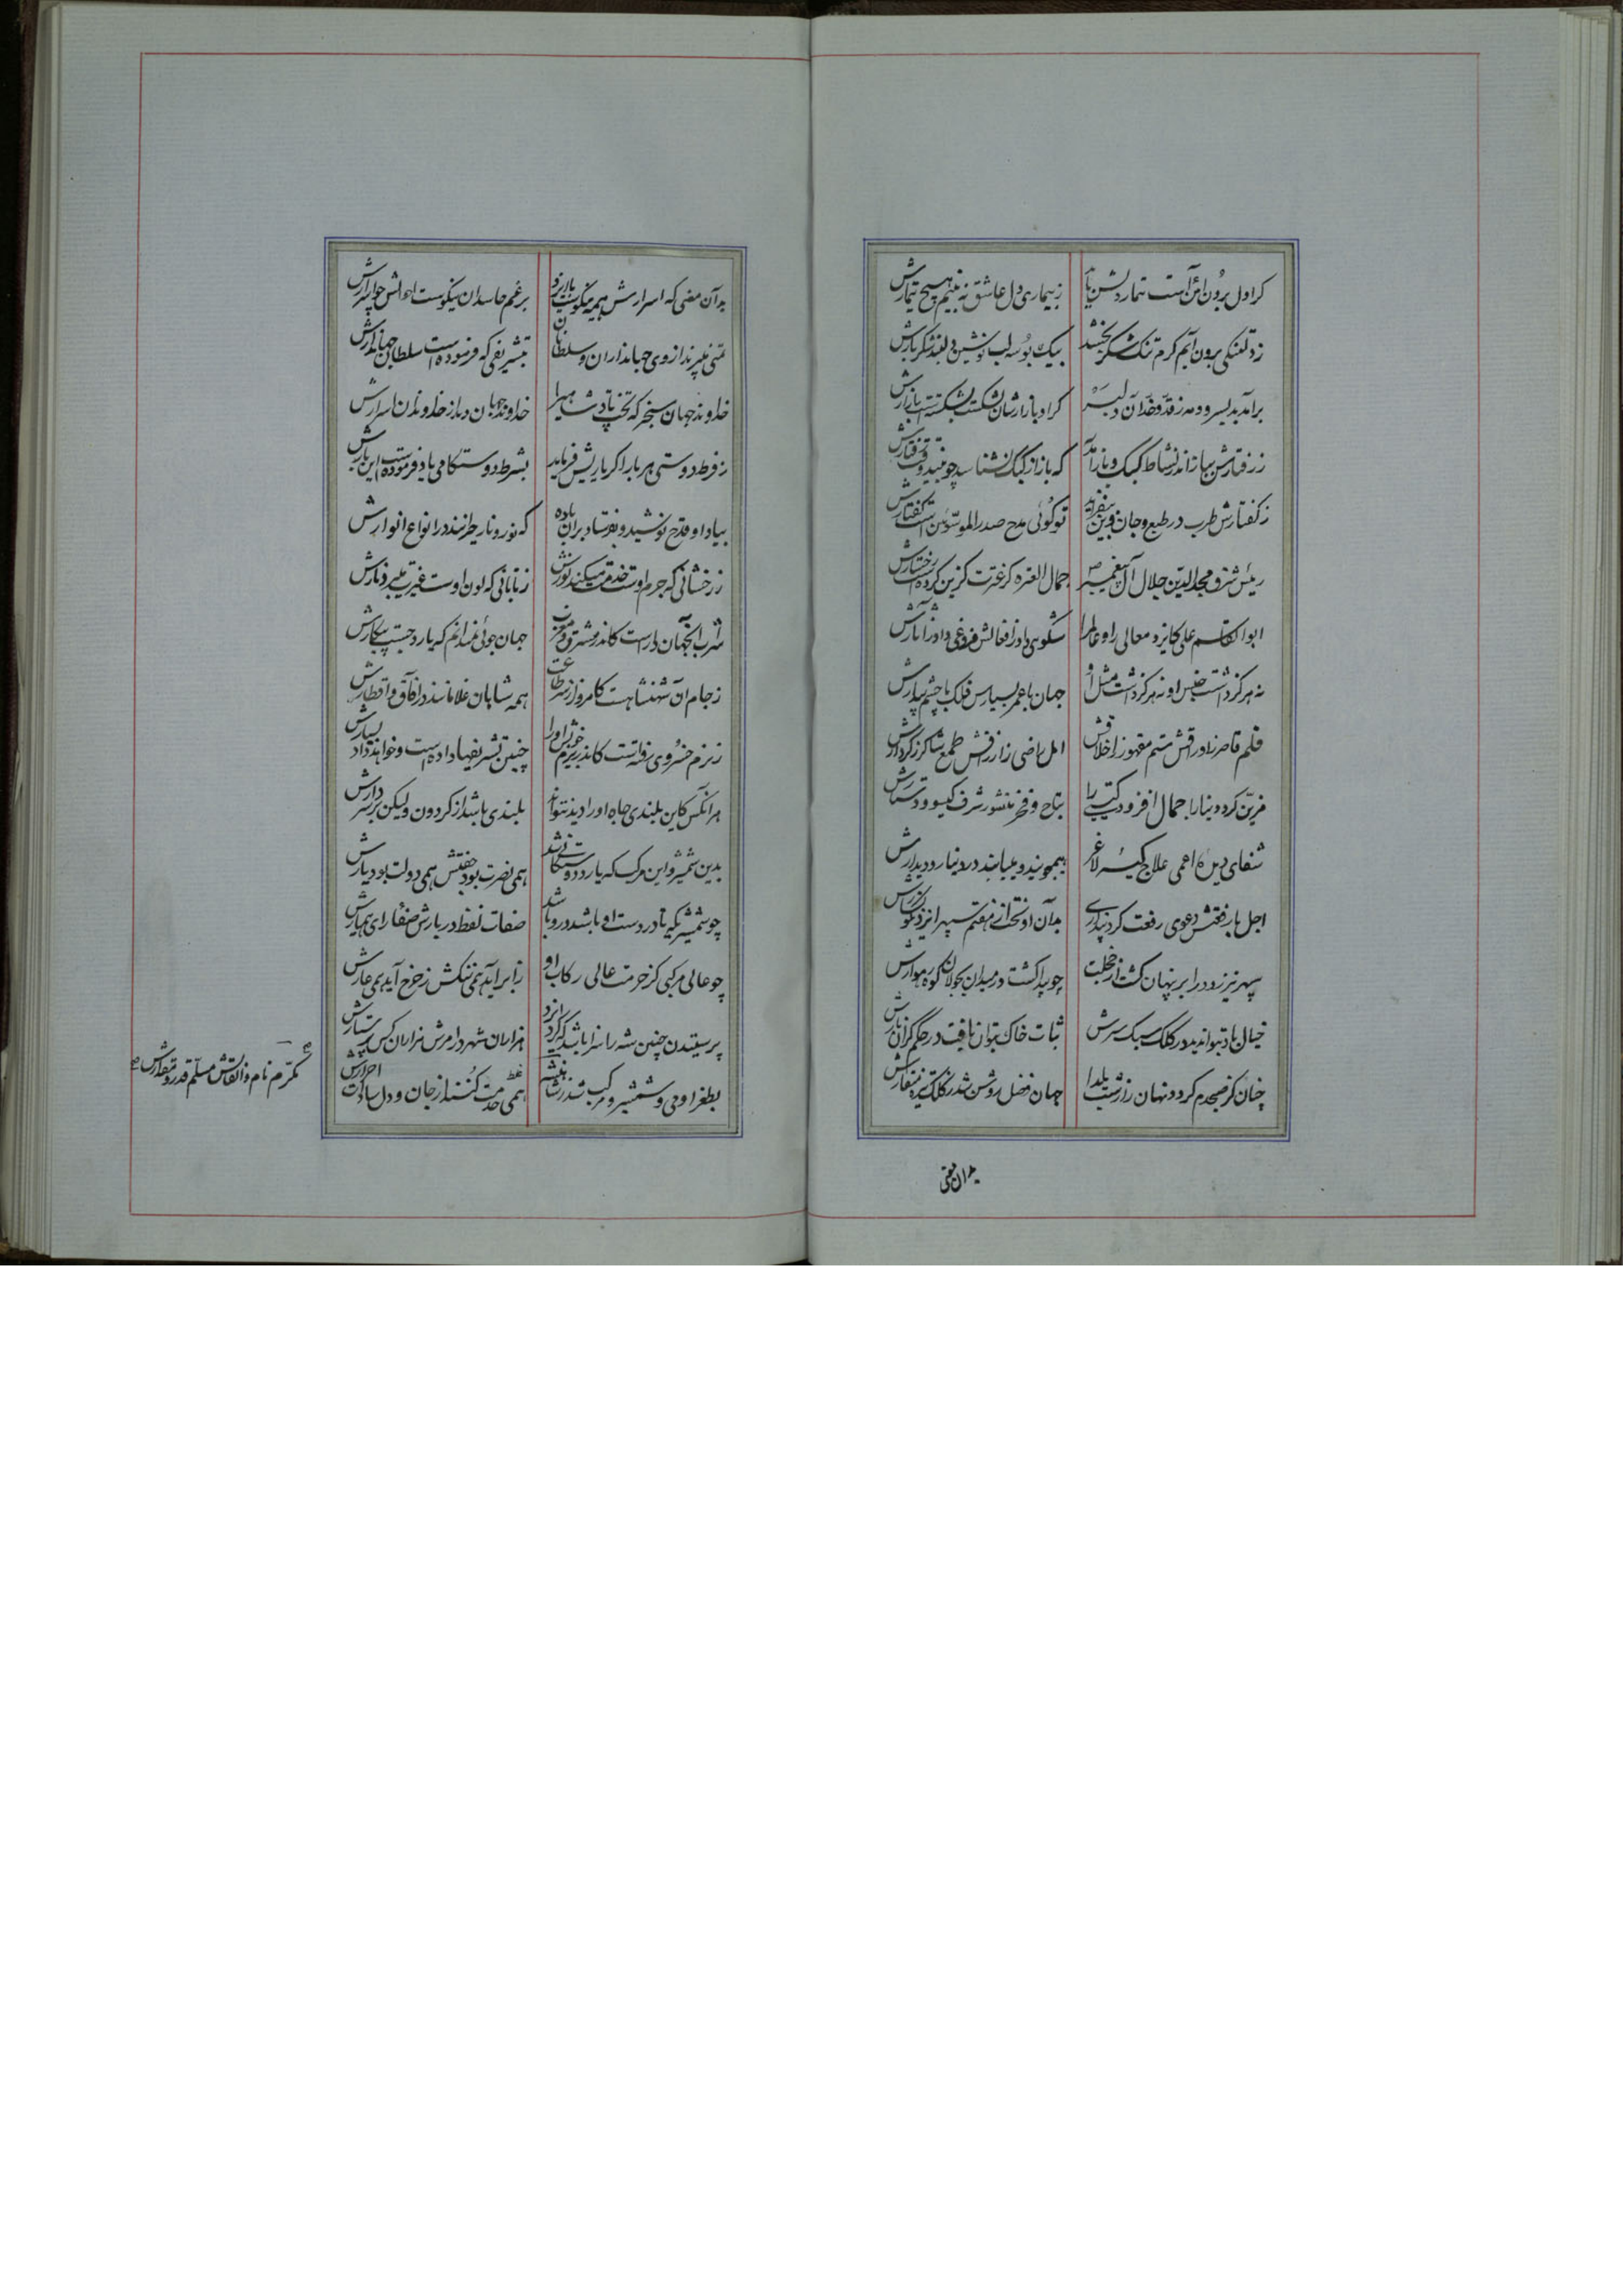 کرا دل برون از من است تیمار دلش باید زبیماری دل عاشق نه بینم هیچ تیمارش
ز دلتنگی برون آیم کرم تنگ شکر بخشد بیک بوسه لب نوشین دلبند شکر بارش
برآمد بدلبسر و ومه ز قد و خد آن دلبر کرا و بازارشان بشکست نشکسته است بازارش
ز رفتارش بباز اندر نشاط کبک باز آمد که باز از کبک نشناسد چو بیند وقت رفتارش
ز کفتارش طرب در طبع و جان و دین بیفزاید تو کوئی مدح صدر الموسوئین است کفتارش
رئیس شرق مجد الدین جلال آل پیغمبر ص جمال العتره کز عترت کزین کرده است
ابوالقاسم علی کایزد معالی راو عالم را
نه هرکز داشت جنس او نه هرکز داشت مثل او جهان با عمر بسیارش فلک با چشم بیدارش
قلم قاصر ز اوراقش ستم مقهور ز اخلاقش امل راضی ز ارزاقش طمع شاکر ز کردارش
مزین کرد و دنیا را جمال افزود کیتی را بتاج و فخر منشور شرف کیسو و دستارش
شفای دین اعمی علاج کیسه لاغر همیجویند و مییابند در دنیا رو دیدارش
اجل با رفعتش دعوی رفعت کرد پنداری بدان اوفتخت از هفتم سپهر ایزد نکونسارش
سپهر نیز رو در ابر پنهان کشت از خجلت چو پیدا کشت در میدان بجولان کوه رهوارش
خیال باد بتواند دید در کلک سبک سرش ثبات خاک بتوان یافت در حکم کرانبارش
چنان کز صبحدم کردد نهان راز شب یلدا جهان فضل روشن شد ز کلک تیره منقارش
بدان معنی
بدان معنی که اسرارش همه نیکوست با ایزد برغم حاسدان نیکوست احوالش چو اسرارش
تمنی میبرند از وی جهانداران و سلطانان بتشریفی که فرموده است سلطان جهاندارش
خداوند جهان سنجر که تخت پادشاهی را خداوند جهانبان و باز خداوندان
ز فرط دوستی هر بار اکر یاریش فرماید بشرط دوستکامی یاد فرموده است این بارش
بیاد او قدح نوشید و بفرستاد بران باده که نور و نار حیرانند در انواع انوارش
ز رخشانی که جرم اوست خدمت میکند نورش ز تابانی که لون اوست غیرت میبرد نارش
شراب آنجهان دار است کاندر مشرق و مغرب جهان جوئی ندانم که یارد جست پیکارش
ز جام آن شهنشاهست کامروز از سر طاعت همه شاهان غلامانند در آفاق و اقطارش
ز بزم خسروی رفته است کاندر بزم خویش او را چنین تشریفها داده است و خواهد داد بسیارش
هر آنکس کاین بلندی جاه او را دید نتواند بلندی باشد از کردون ولیکن بر سر دارش
بدین شمشیر و این مرکب که یارد دوستکانی شد همی نصرت بود جفتش همی دولت بود یارش
چو شمشیریکه تا در دست او باشد در و باشد صفات لفظ در بارش صفای رای هشیارش
چو عالی مرکبی کز حرمت عالی رکاب او ز ابر آید همی ننکش ز چرخ آید همی عارش
پرستیدن چنین شه را سزا باشد که کرد ایزد هزاران شهر در امرش هزاران کس پرستارش
بطغرا و می و شمشیر و مرکب شد همی خدمت کنند از جان و دل سادات احرارش
مکرم نام و القابش مسلم قدر و مقدارش